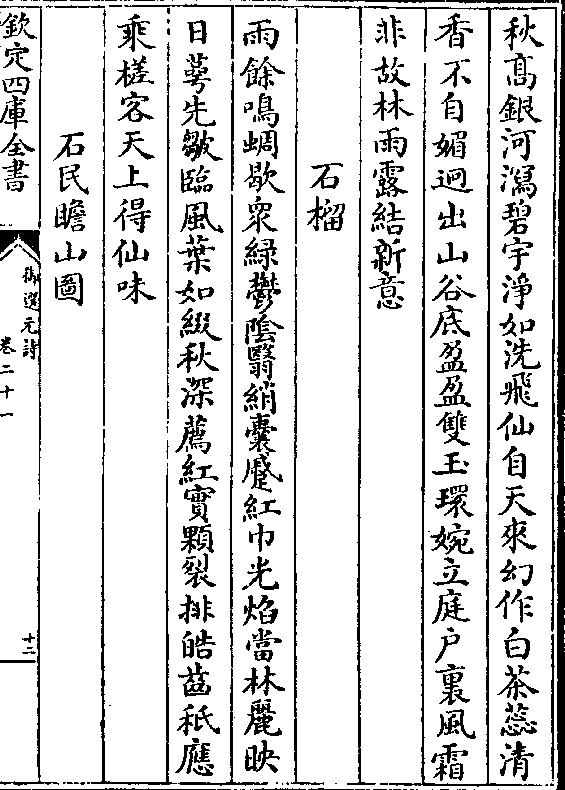 秋髙銀河瀉碧宇淨如洗飛仙自天來幻作白茶蕊清
香不自媚迥出山谷底盈盈雙玉環婉立庭户裏風霜
非故林雨露結新意
石榴
雨餘鳴蜩歇衆綠鬱陰翳綃囊蹙紅巾光焰當林麗映
日萼先皺臨風葉如綴秋深薦紅實顆裂排皓齒秪應
乘槎客天上得仙味
石民瞻山圖
欽定四庫全書
御選元詩
卷二十一
十二